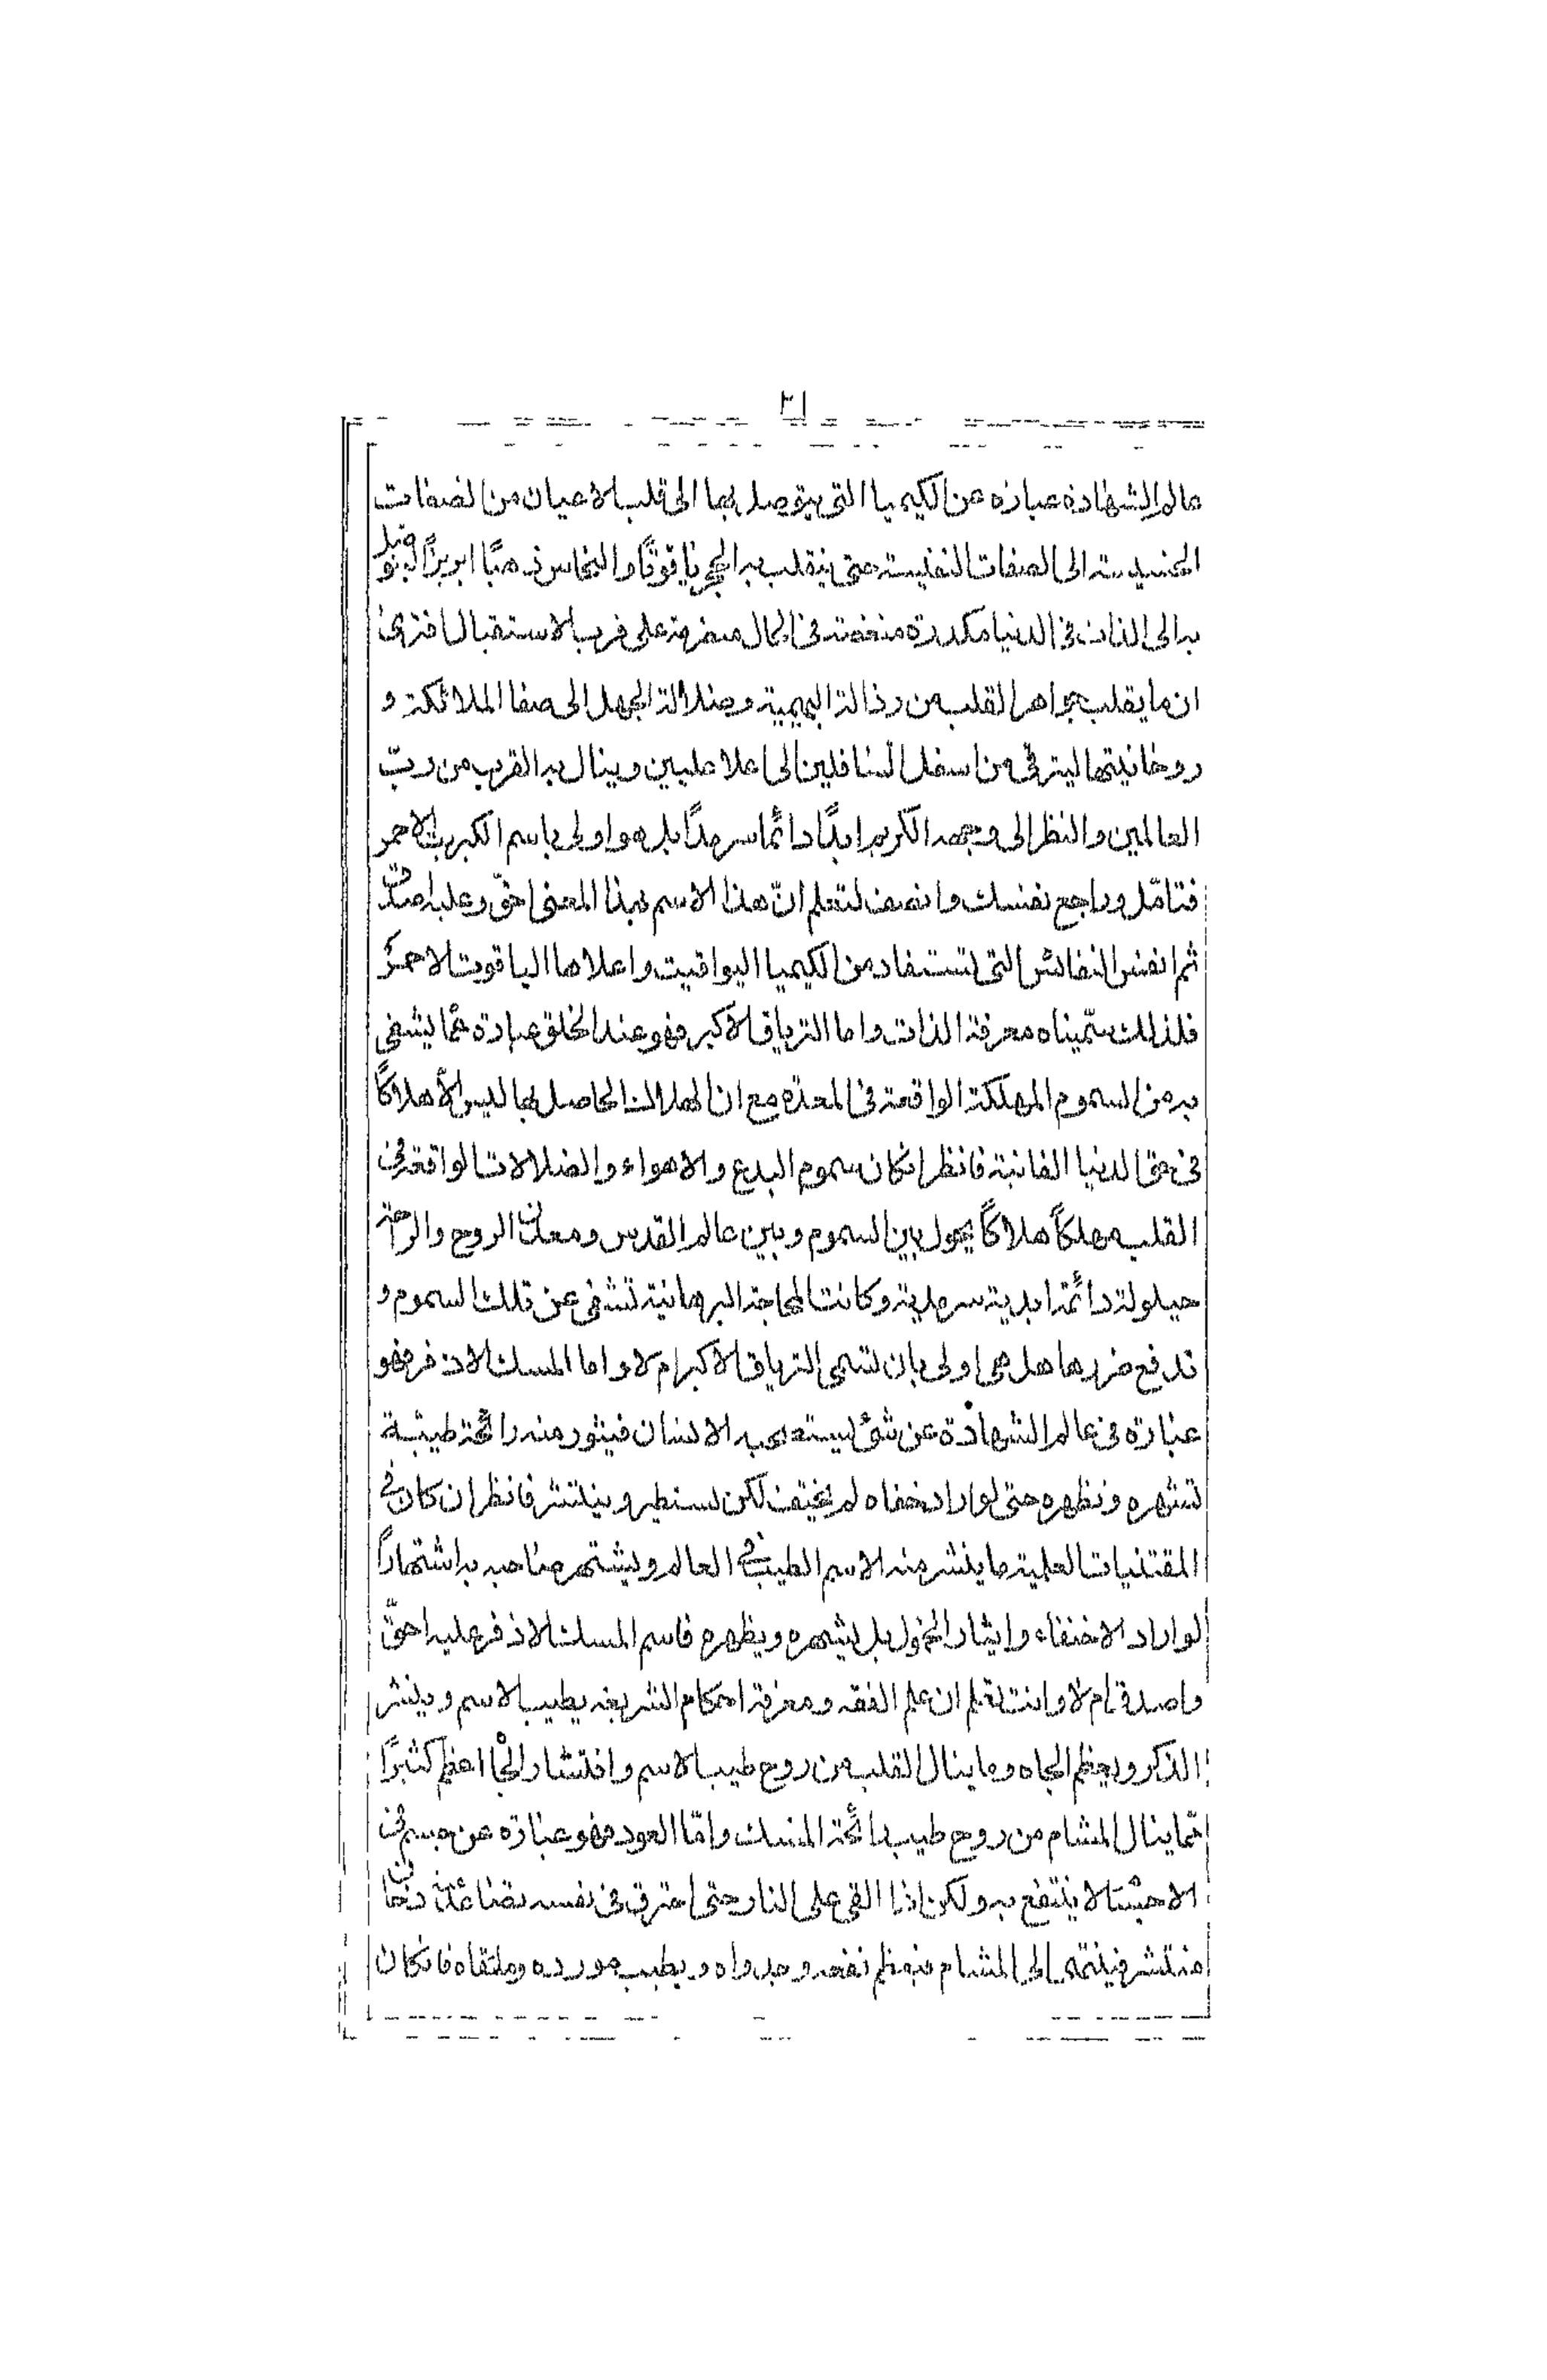 ٢١
عالم الشهادة عبارة عن الكيميا التى يتوصل بها الى قلب الاعيان من الصفات
الخسيسة الى الصفات النفيسة حتى ينقلب به الحجر ياقوتًا والنحاس ذهبًا ابريزًا ليتوصل
به الى اللذات فى الدنيا مكدرة منغصة فى الحال منصرمة على قرب الاستقبال افترى
ان ما يقلب جواهر القلب من رذالة البهيمية وضلالة الجهل الى صفا الملائكة و
روحانيتها ليترقى من اسفل السافلين الى اعلا عليين وينال به القرب من ربّ
العالمين والنظر الى وجهه الكريم ابدًا دائمًا سرمدًا بل هو اولى باسم الكبريت الاحمر
فتامّل وراجع نفسك وانصف لتعلم انّ هذا الاسم بهذا المعنى احقّ وعليه اصدق
ثم انفس النفائس التى تستفاد من الكيميا اليواقيت واعلاها الياقوت الاحمر
فلذلك سمّيناه معرفة الذات واما الترياق الاكبر فهو عند الخلق عبارة عما يشفى
به من السموم المهلكة الواقعة فى المعدة مع ان الهلاك الحاصل بها ليس الّا هلاكًا
فى حق الدنيا الفانية فانظر انكان سموم البدع والاهواء والضلالات الواقعة فى
القلب مهلكًا هلاكًا يحول بين السموم وبين عالم القدس ومعدن الروح والراحة
حيلولة دائمة ابدية سرمدية وكانت المحاجة البرهانية تشفى عن تلك السموم و
تدفع ضررها هل هى اولى بان تسمى الترياق الاكبر ام لا واما المسك الاذفر فهو
عبارة فى عالم الشهادة عن شئ يستصحبه الانسان فيثور منه رائحة طيبة
تشهره وتظهره حتى لو اراد خفاه لم يختف لكن يستطير وينتشر فانظر ان كان فى
المقتنيات العلمية ما ينشر منه الاسم الطيب فى العالم ويشتهر صاحبه به اشتهارًا
لو اراد الاختفاء وايثار الخمول بل يشهره ويظهره فاسم المسك الاذفر عليه احقّ
واصدق ام لا وانت تعلم ان علم الفقه ومعرفة احكام الشريعة يطيب الاسم وينشر
الذكر ويعظم الجاه وما ينال القلب من روح طيب الاسم وانتشار الجا اعظم كثيرًا
ممّا ينال المشام من روح طيب رائحة المسك وامّا العود فهو عبارة عن جسم فى
الاجسا لا ينتفع به ولكن اذا القى على النار حتى احترق فى نفسه تصاعد منه دخان
منتشر فينتهى الى المشام فيعظم نفعه وجدواه ويطيب مورده وملتقاه فانكان